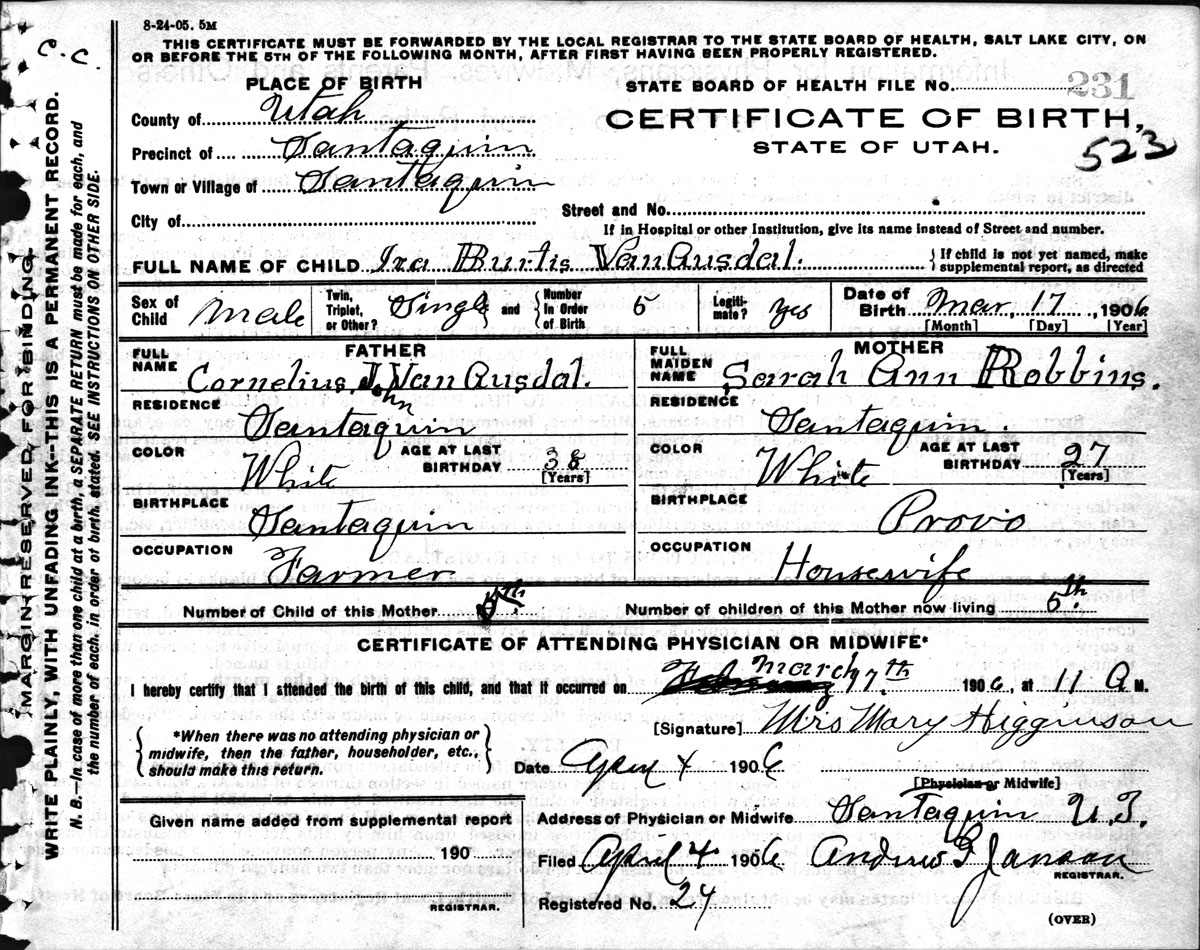 8-24-05. 5M
C. C
THIS CERTIFICATE MUST BE FORWARDED BY THE LOCAL REGISTRAR TO THE STATE BOARD OF HEALTH, SALT LAKE CITY, ON
OR BEFORE THE 5TH OF THE FOLLOWING MONTH, AFTER FIRST HAVING BEEN PROPERLY REGISTERED.
MARGIN RESERVED FOR BINDING.
WRITE PLAINLY, WITH UNFADING INK--THIS IS A PERMANENT RECORD.
N. B.--In case of more than one child at a birth, a SEPARATE RETURN must be made for each, and
the number of each, in order of birth, stated. SEE INSTRUCTIONS ON OTHER SIDE.
PLACE OF BIRTH
STATE BOARD OF HEALTH FILE NO. 231
County of Utah
CERTIFICATE OF BIRTH,
Precinct of Santaquin
STATE OF UTAH.
523
Town or Village of Santaquin
City of
Street and No.
If in Hospital or other Institution, give its name instead of Street and number.
FULL NAME OF CHILD Ira Burtis VanAusdal. { If child is not yet named, make
supplemental report, as directed
Sex of Child Male Twin, Triplet, or Other? Single and { Number In Order of Birth 5 Legitimate? Yes Date of Birth Mar, 17, 1906
[Month] [Day] [Year]
FATHER
MOTHER
FULL NAME Cornelius J. VanAusdal.
John
FULL MAIDEN NAME Sarah Ann Robbins.
RESIDENCE Santaquin
RESIDENCE Santaquin.
COLOR White AGE AT LAST BIRTHDAY 38 [Years]
COLOR White AGE AT LAST BIRTHDAY 27 [Years]
BIRTHPLACE Santaquin
BIRTHPLACE Provio
OCCUPATION Farmer
OCCUPATION Housewife
Number of Child of this Mother 5th
Number of children of this Mother now living 5th
CERTIFICATE OF ATTENDING PHYSICIAN OR MIDWIFE*
I hereby certify that I attended the birth of this child, and that it occurred on March 17th 1906, at 11 A M.
{ *When there was no attending physician or
midwife, then the father, householder, etc.,
should make this return. }
[Signature] Mrs Mary Higginson
Date April 4 1906
[Physician or Midwife]
Given name added from supplemental report
190
REGISTRAR.
Address of Physician or Midwife Santaquin U.T.
Filed April 4 1906 Andrew G Janson
REGISTRAR.
Registered No. 24
(OVER)